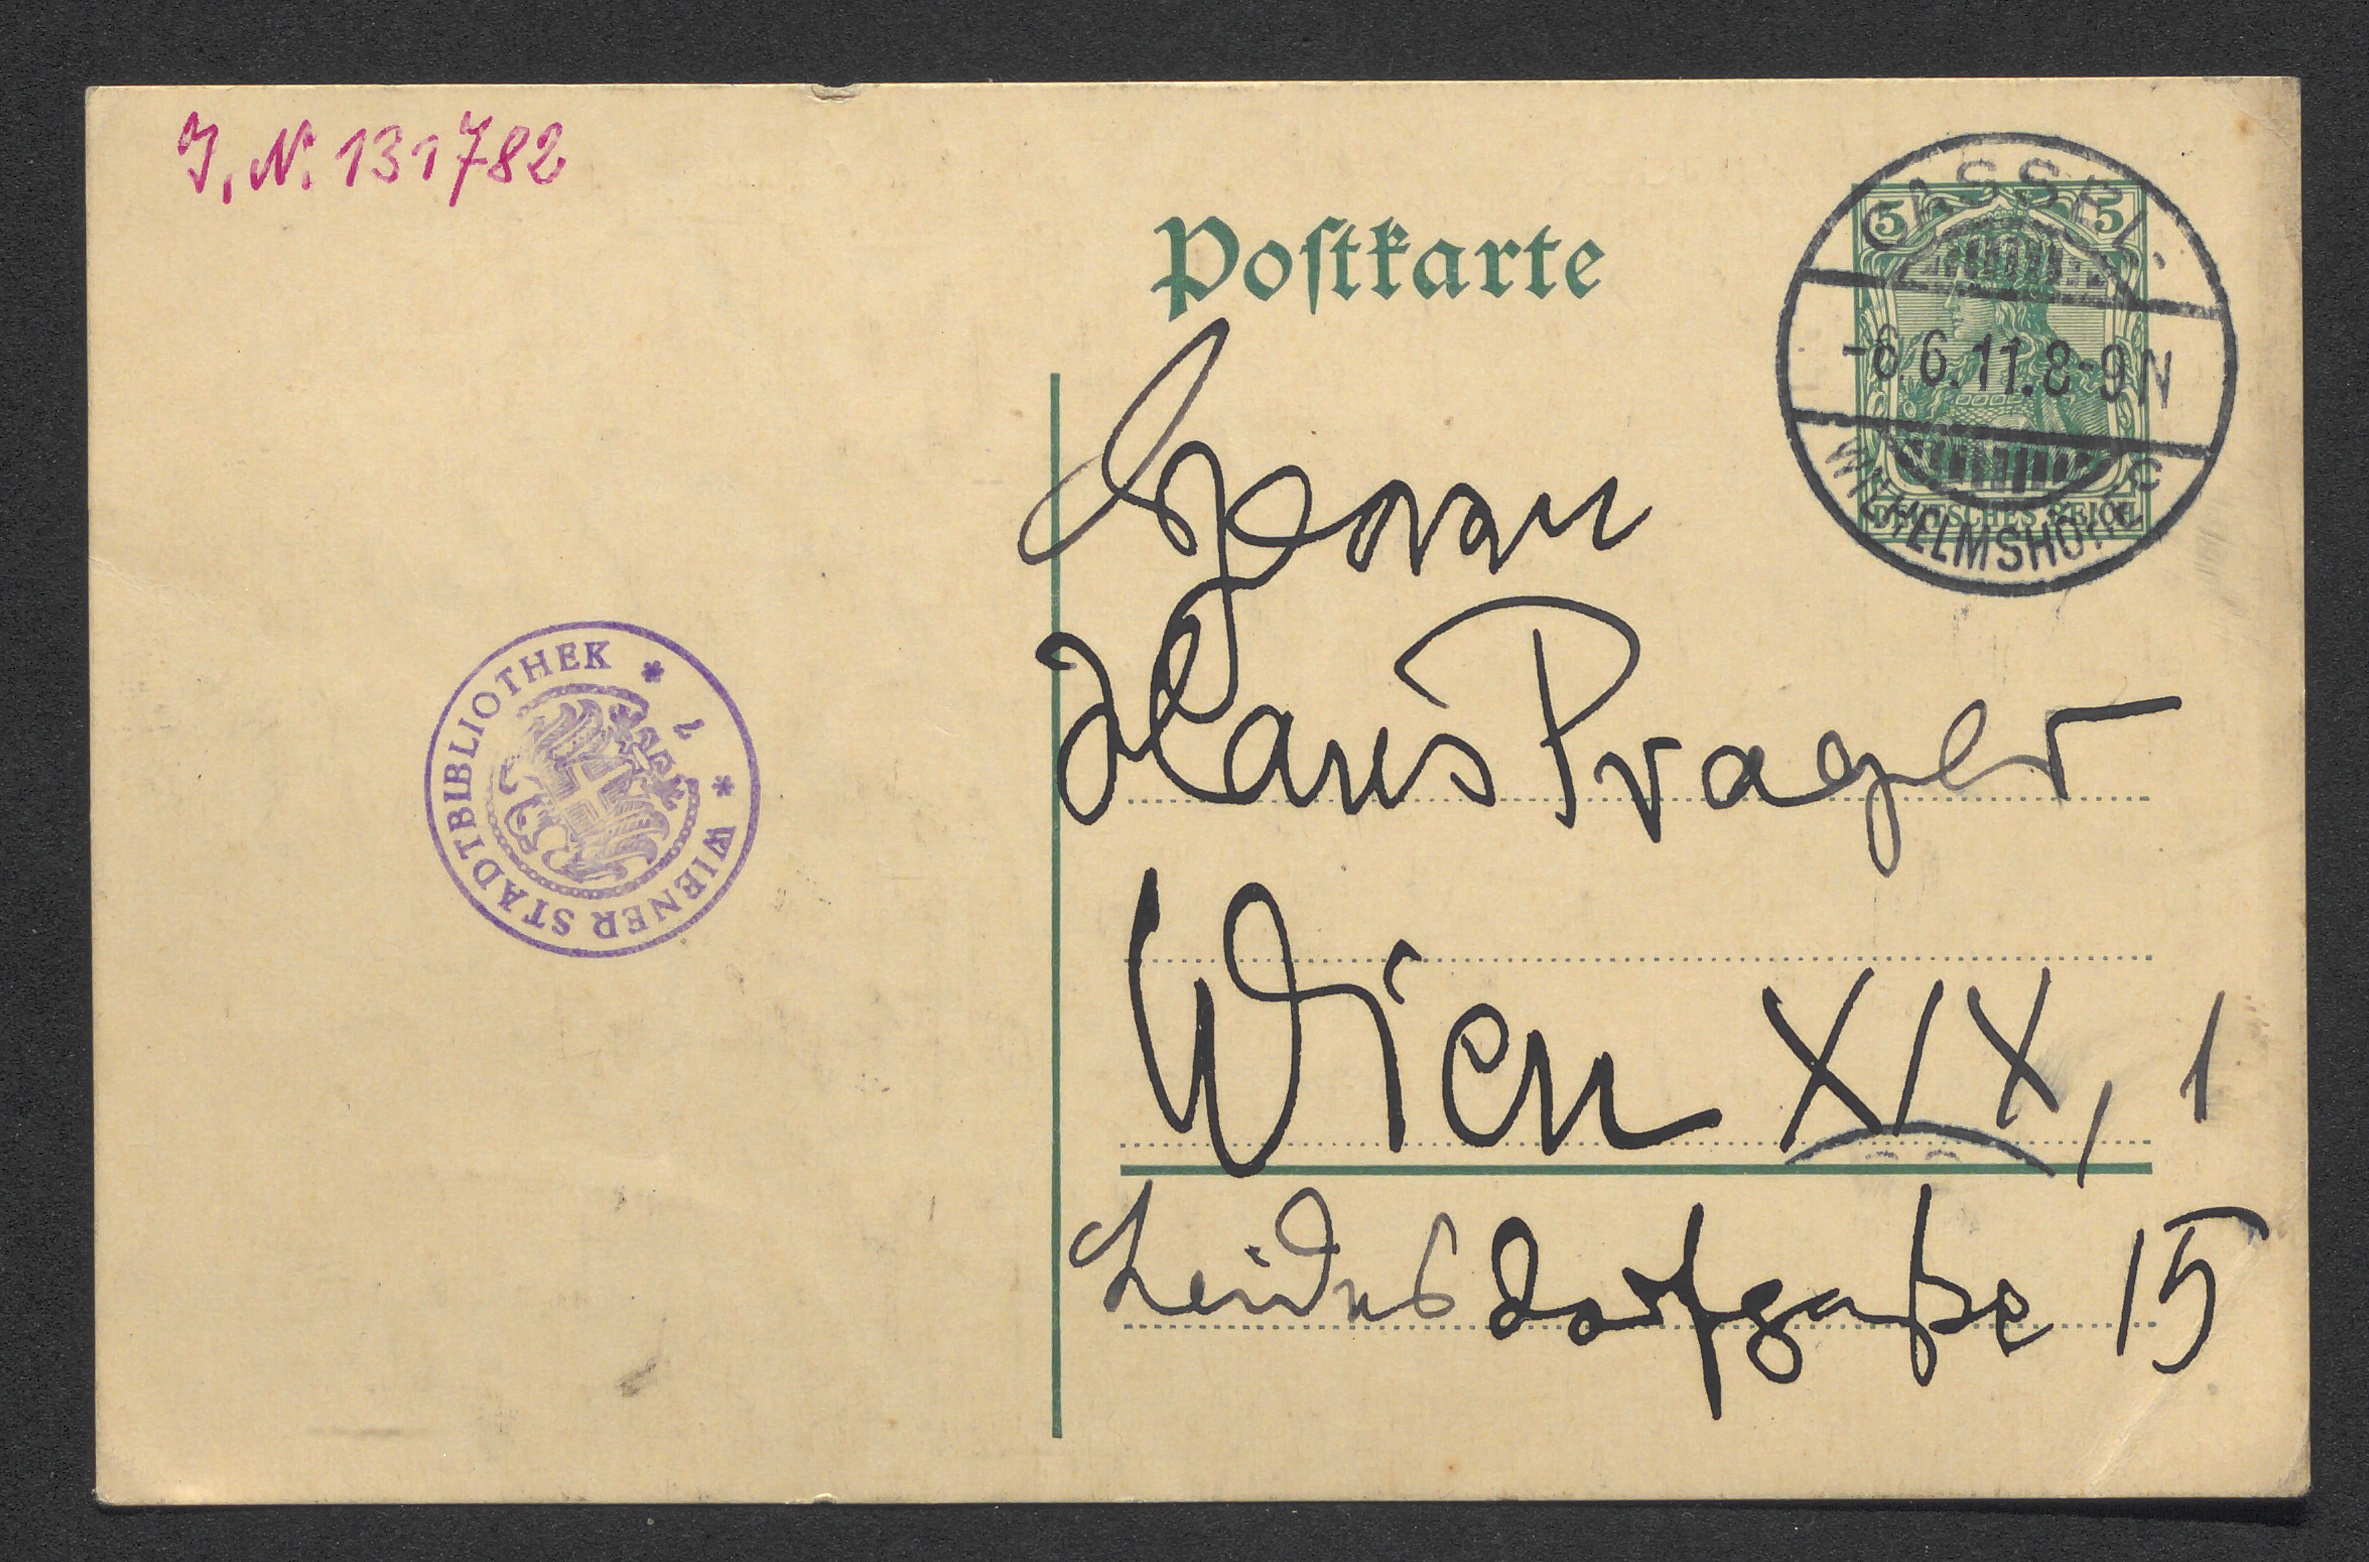 J. N. 131782
Postkarte
5 5
CASSEL
-6.6.11.8-9N
WILHELMSHÖHE
DEUTSCHES REICH
Herrn
Hans Prager
Wien XIX, 1
Leidesdorfgaße 15
WIENER STADTBIBLIOTHEK